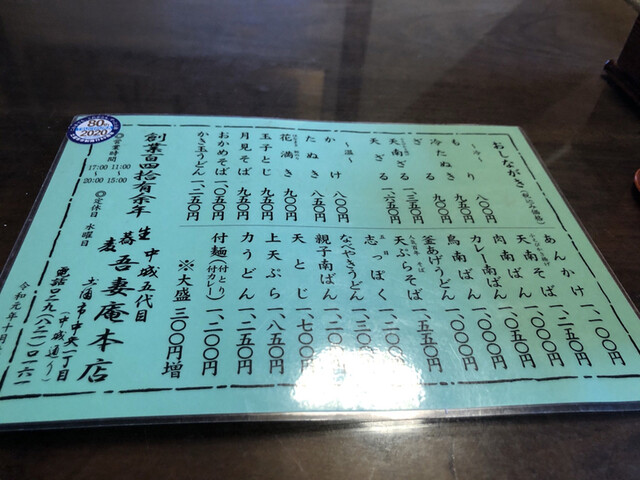 おしながき（税込み価格）
〜冷〜
もり 八〇〇円
冷たぬき 九〇〇円
ざる 九五〇円
天南ざる
天ざる 一、六五〇円
〜温〜
かけ 八〇〇円
たぬき 八五〇円
花満き 九〇〇円
玉子とじ 九五〇円
月見そば 九五〇円
おかめそば 一、二五〇円
かき玉うどん 一、二五〇円
あんかけ
天南そば 一、二五〇円
肉南ばん
カレー南ばん
鳥南ばん
釜あげうどん
天ぷらそば 一、五五〇円
志っぽく 一、二〇〇円
なべやきうどん
親子南ばん
天とじ 一、七〇〇円
上天ぷら 一、八五〇円
力うどん 一、二〇〇円
付麺（付とり）（付カレー） 一、二〇〇円
※大盛 三〇〇円増
生蕎麦
中城五代目
吾妻庵本店
創業百四拾有余年
土浦市中央一丁目
（中城通り）
電話〇二九（八二一）〇一六一
◎営業時間
11:00〜15:00
17:00〜20:00
◎定休日 水曜日
令和元年十月
80
2020